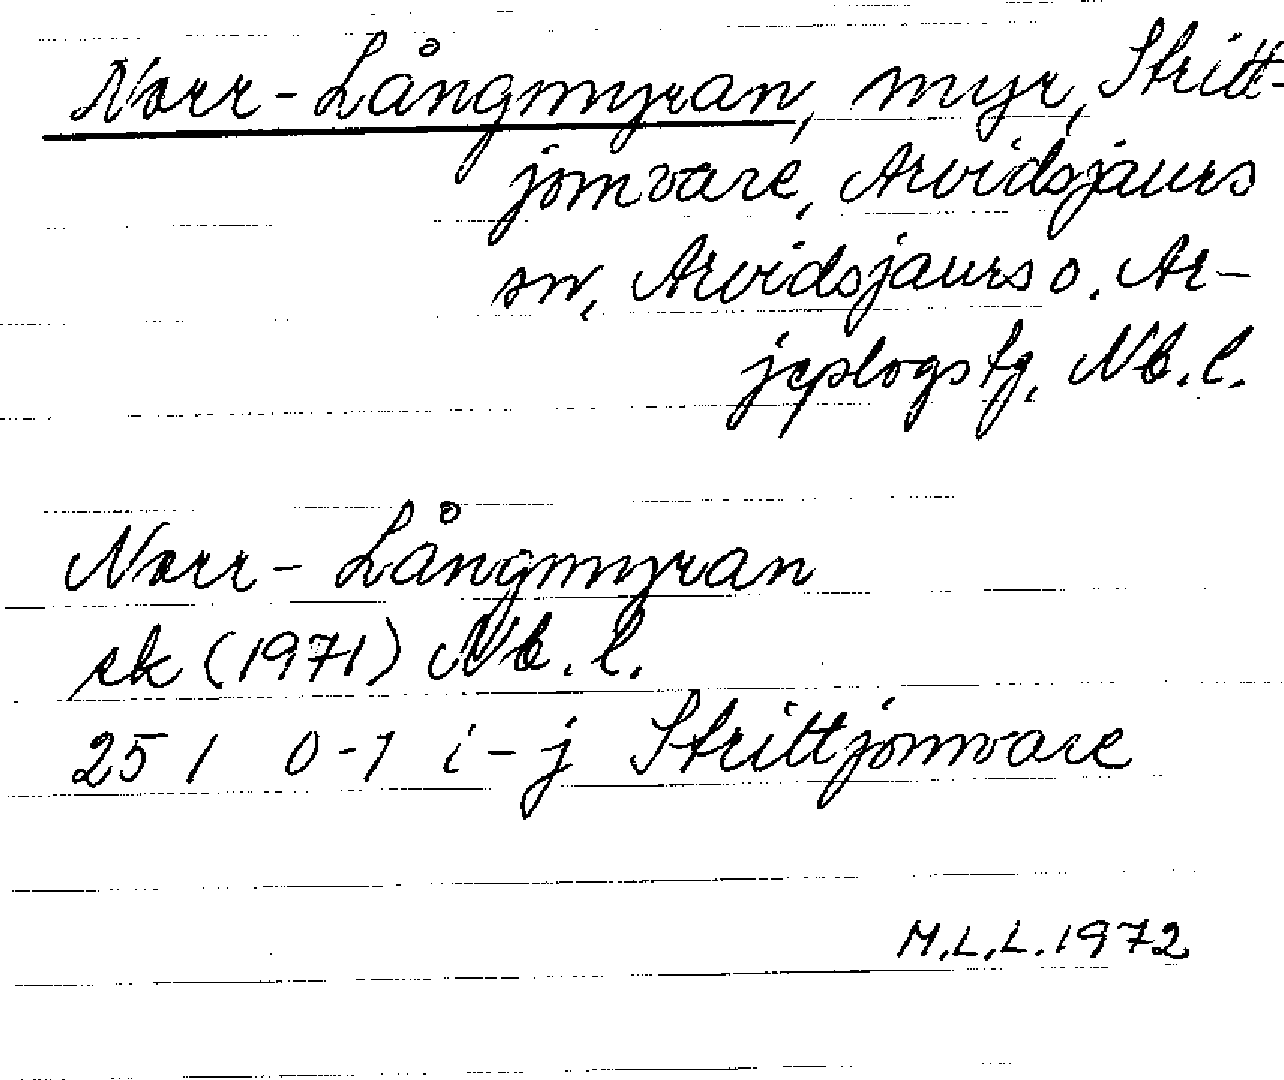 Norr-Långmyran, myr, Stritt-
jomvare, Arvidsjaurs
sn, Arvidsjaurs o. Ar-
jeplogs tg, Nb. l.
Norr-Långmyran
ek (1971) Nb. l.
25 I 0-1 i-j Strittjomvare
M.L.L. 1972